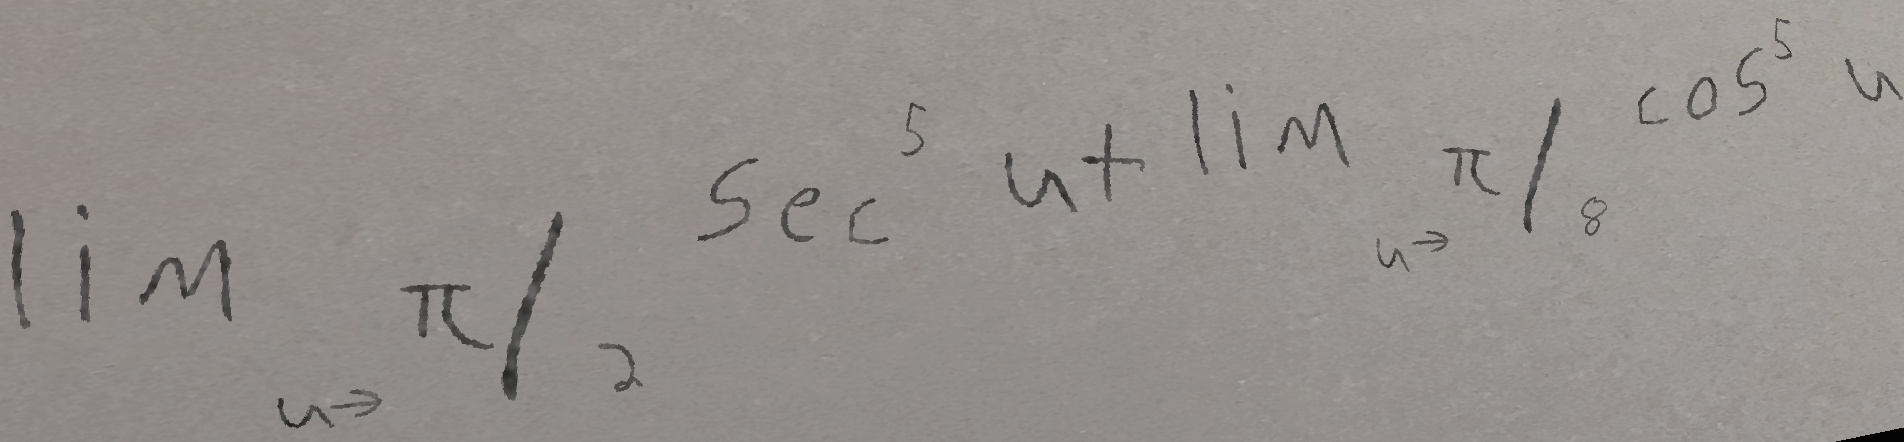 \lim_{u \to \pi/2} \sec^5 u + \lim_{u \to \pi/8} \cos^5 u